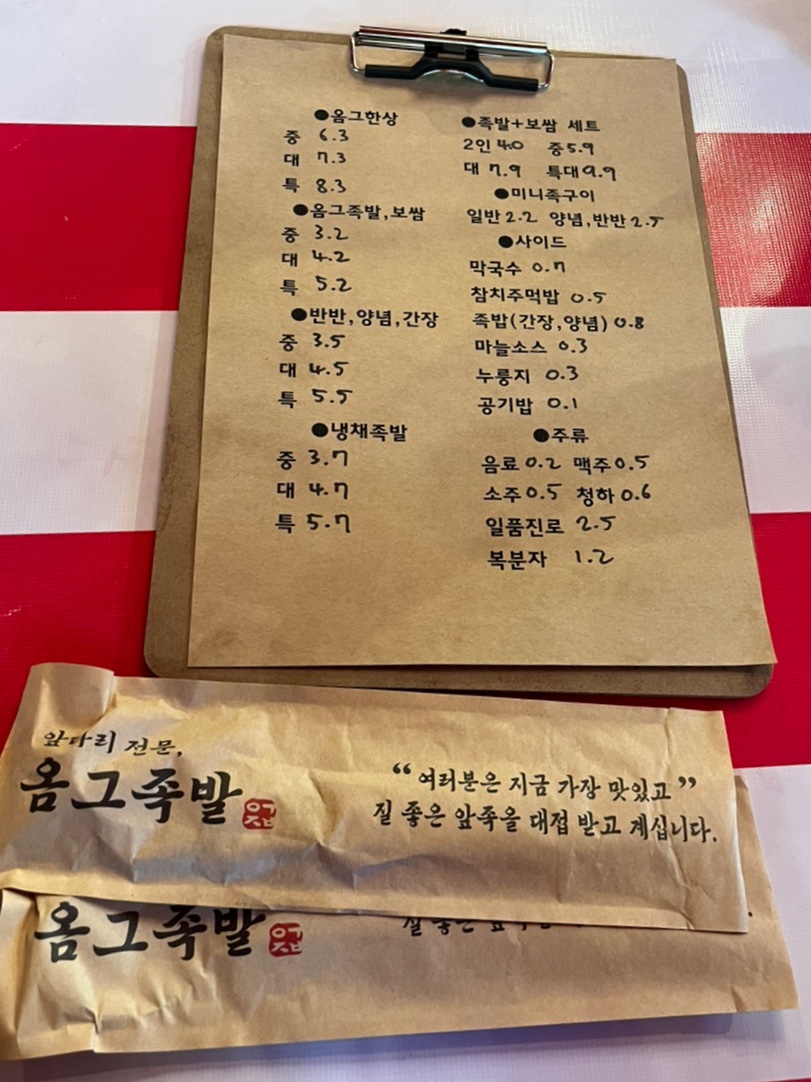 ●옴그한상
중 6.3
대 7.3
특 8.3
●옴그족발,보쌈
중 3.2
대 4.2
특 5.2
●반반,양념,간장
중 3.5
대 4.5
특 5.5
●냉채족발
중 3.7
대 4.7
특 5.7
●족발+보쌈 세트
2인 4.0 중 5.9
대 7.9 특대 9.9
●미니족구이
일반 2.2 양념,반반 2.5
●사이드
막국수 0.7
참치주먹밥 0.5
족밥(간장,양념) 0.8
마늘소스 0.3
누룽지 0.3
공기밥 0.1
●주류
음료 0.2 맥주 0.5
소주 0.5 청하 0.6
일품진로 2.5
복분자 1.2
앞다리 전문,
옴그족발
“여러분은 지금 가장 맛있고”
질 좋은 앞족을 대접 받고 계십니다.
옴그족발
질 좋은